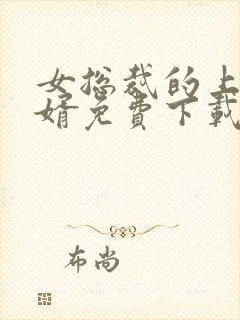 女总裁的上
婿免费下载
布尚